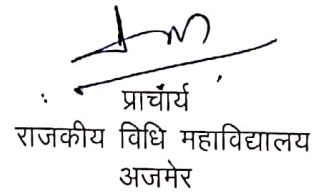 प्राचार्य
राजकीय विधि महाविद्यालय
अजमेर